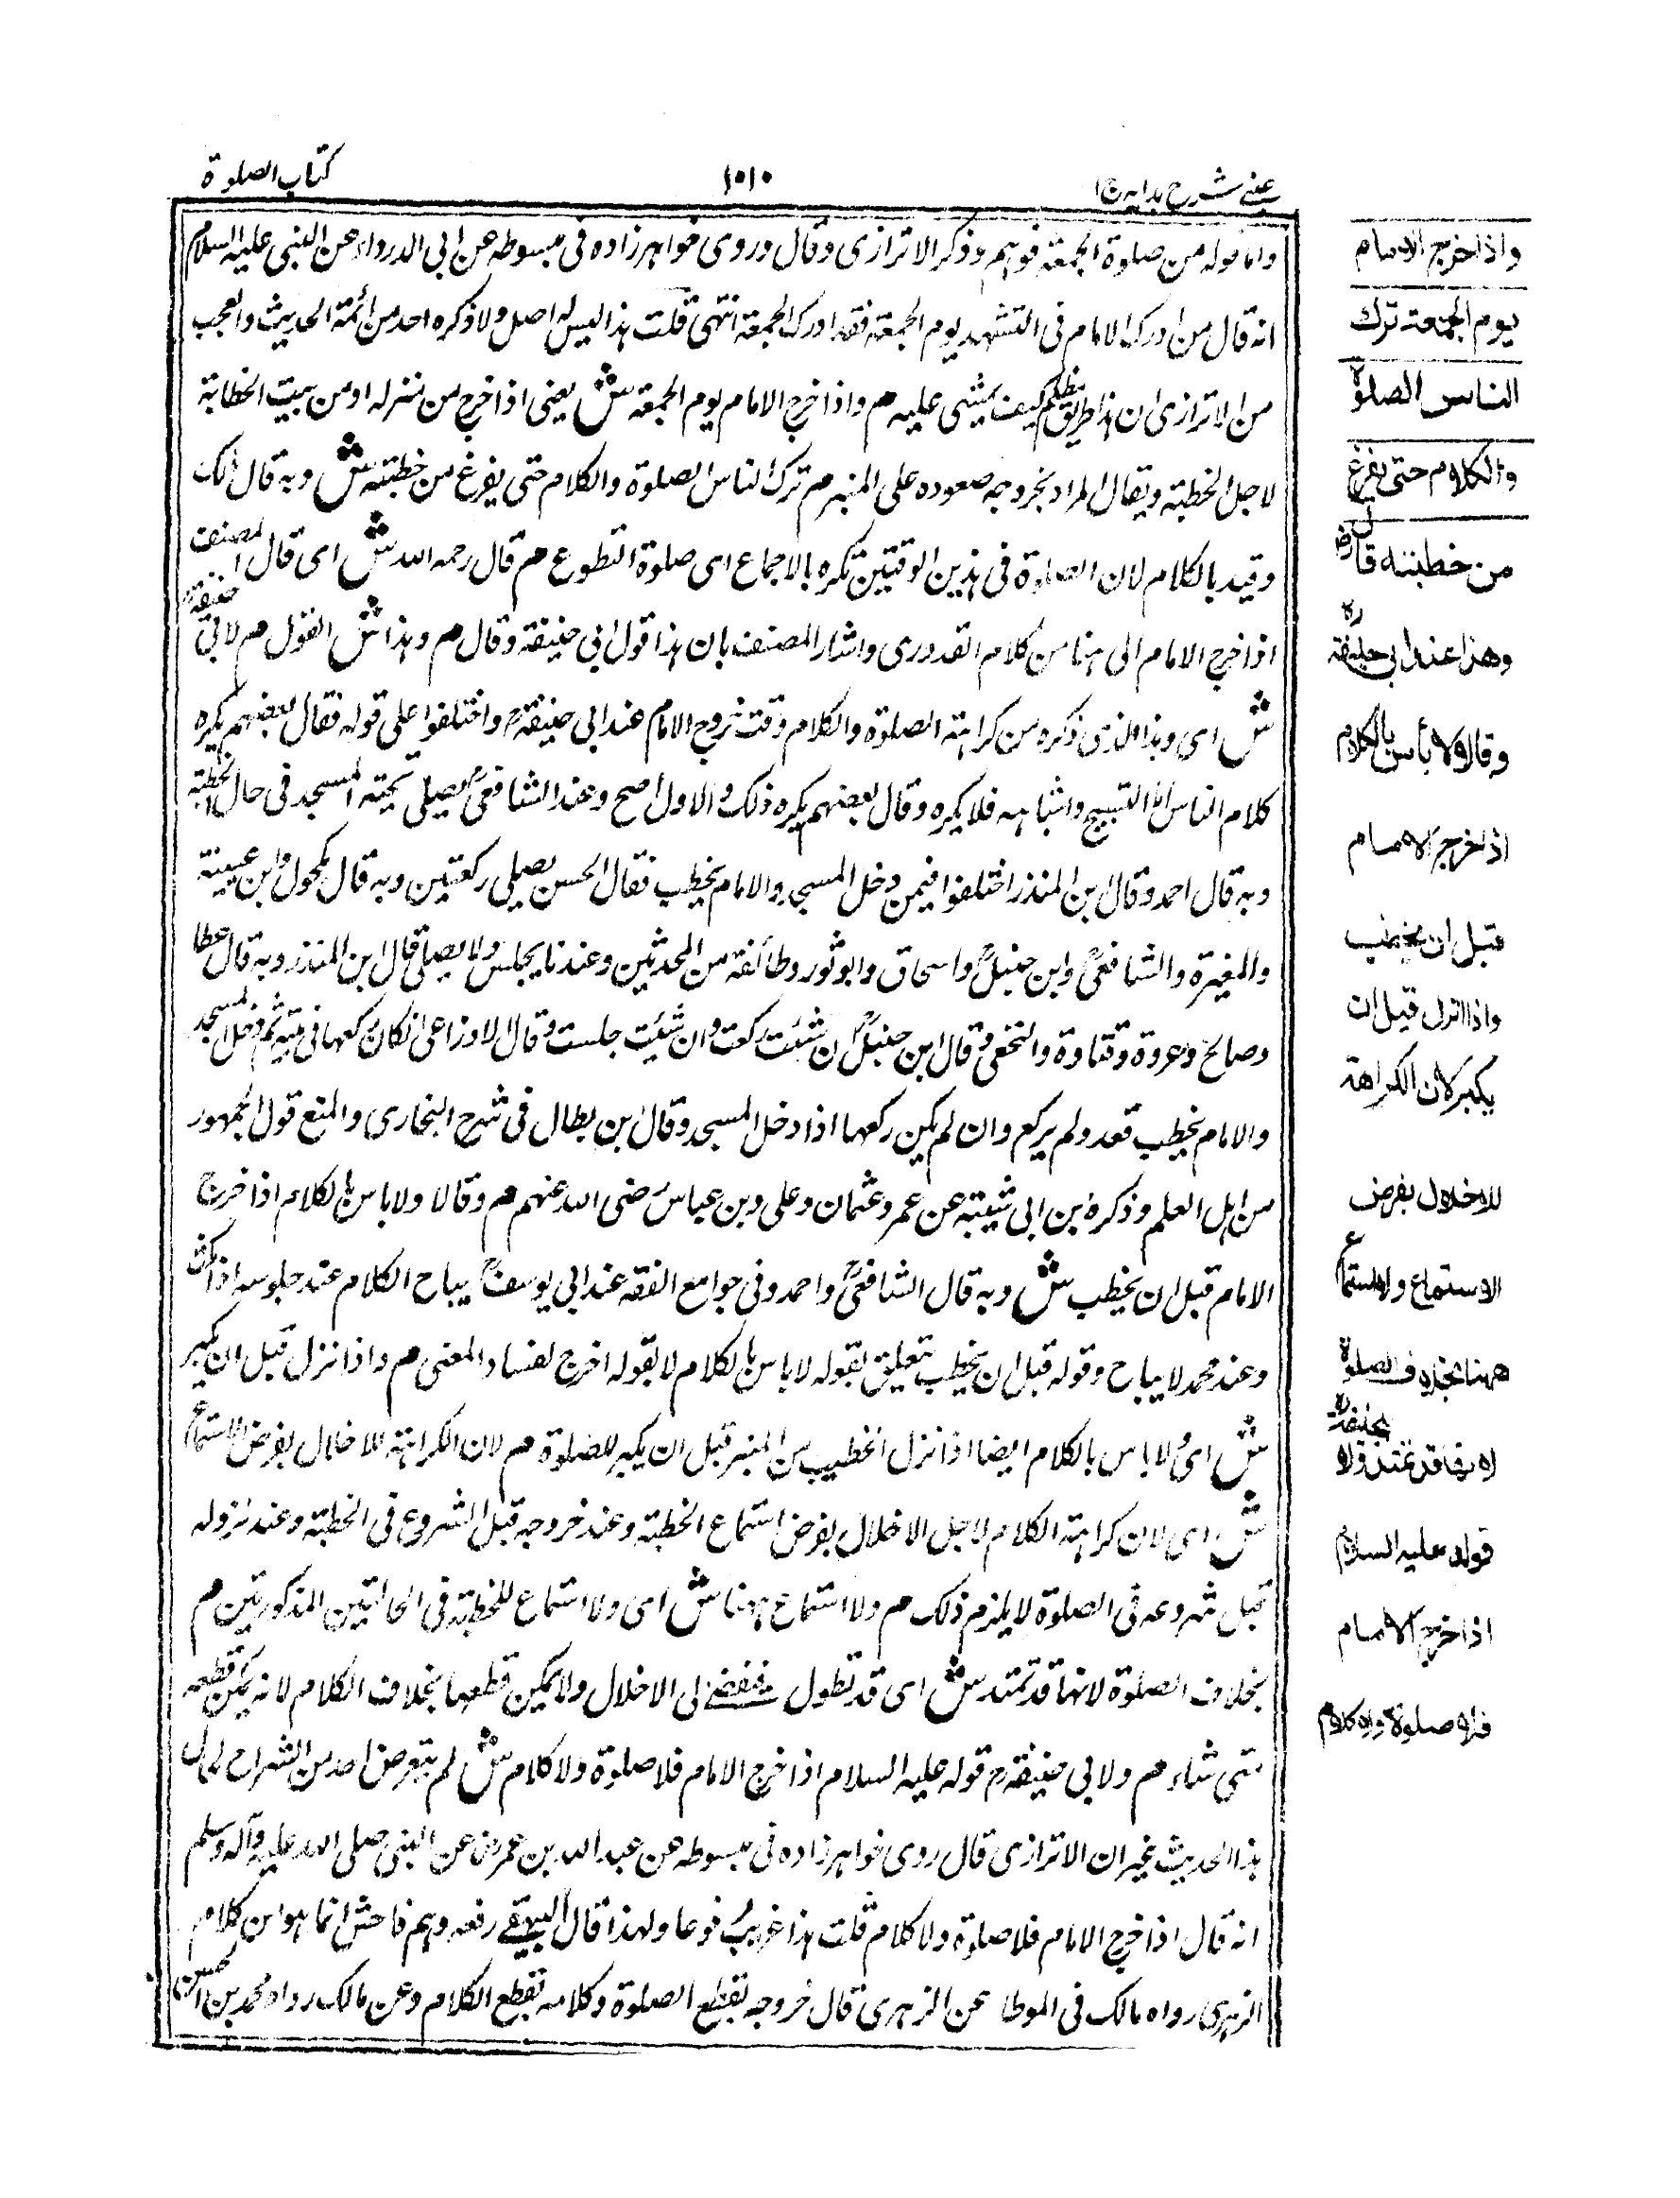 عینے شرح ہدایہ ج ۱
۱۰۱۰
کتاب الصلوة
واما قوله من صلوة الجمعة فوہم وذکر الاترازی وقال وروی خواہرزادہ فی مبسوطہ عن ابی الدرداء عن النبی علیہ السلام
انه قال من ادرک الامام فی التشہد یوم الجمعة فقد ادرک الجمعة انتہی قلت ہذا لیس لہ اصل ولا ذکرہ احد من ائمة الحدیث والعجب
من الاترازی ان ہذا طریق نظلم کیف یمشی علیہ م واذا خرج الامام یوم الجمعة ش یعنی اذا خرج من منزلہ او من بیت الخطابة
لاجل الخطبة ویقال المراد بخروجہ صعودہ علی المنبر م ترک الناس الصلوة والکلام حتی یفرغ من خطبتہ ش وبہ قال مالک
وقید بالکلام لان الصلوة فی ہذین الوقتین تکرہ بالاجماع ای صلوة التطوع م قال رحمہ اللہ ش ای قال المصنف
اذا خرج الامام الی ہنا من کلام القدوری واشار المصنف بان ہذا قول ابی حنیفة وقال م وہذا ش القول م لابی حنیفة
ش ای وہذا الذی ذکرہ من کراہتہ الصلوة والکلام وقت خروج الامام عند ابی حنیفة واختلفوا علی قولہ فقال بعضہم یکرہ
کلام الناس اما التسبیح واشباہہ فلا یکرہ وقال بعضہم یکرہ ذلک والاول اصح وعند الشافعی یصلی تحیتہ المسجد فی حال الخطبة
وبہ قال احمد وقال ابن المنذر اختلفوا فیمن دخل المسجد والامام یخطب فقال الحسن یصلی رکعتین وبہ قال مکحول وابن عیینة
والمغیرة والشافعی وابن حنبل واسحاق وابو ثور وطائفة من المحدثین وعندنا یجلس ولا یصلی قال ابن المنذر وبہ قال عطا
وصالح وعروة وقتادة والنخعی وقال ابن حنبل ان شئت رکعت وان شئت جلست وقال الاوزاعی ان کان رکعہا فی بیتہ ثم دخل المسجد
والامام یخطب قعد ولم یرکع وان لم یکن رکعہا اذا دخل المسجد وقال ابن بطال فی شرح البخاری والمنع قول الجمہور
من اہل العلم وذکرہ ابن ابی شیبة عن عمر وعثمان وعلی وبن عباس رضی اللہ عنہم م وقالا ولا باس بالکلام اذا خرج
الامام قبل ان یخطب ش وبہ قال الشافعی واحمد وفی جوامع الفقہ عند ابی یوسف یباح الکلام عند جلوسہ اذا سکت
وعند محمد لا یباح وقولہ قبل ان یخطب یتعلق بقولہ لا باس بالکلام لا بقولہ اخرج لفساد المعنی م واذا نزل قبل ان یکبر
ش ای لا باس بالکلام ایضا اذا نزل الخطیب من المنبر قبل ان یکبر للصلوة م لان الکراہتہ للاخلال بفرض الاستماع
ش ای لان کراہتہ الکلام لاجل الاخلال بفرض استماع الخطبة وعند خروجہ قبل الشروع فی الخطبة وعند نزولہ
قبل شروعہ فی الصلوة لا یلزم ذلک م ولا استماع ہہنا ش ای ولا استماع للخطبة فی الحالتین المذکورتین م
بخلاف الصلوة لانہا قد تمتد ش ای قد تطول فتفضے الی الاخلال ولا یمکن قطعہا بخلاف الکلام لانہ یمکن قطعہ
متی شاء م ولابی حنیفة قولہ علیہ السلام اذا خرج الامام فلا صلوة ولا کلام ش لم یتعرض احد من الشراح لحال
ہذا الحدیث غیر ان الاترازی قال روی خواہرزادہ فی مبسوطہ عن عبد اللہ بن عمر عن النبی صلی اللہ علیہ وآلہ وسلم
انہ قال اذا خرج الامام فلا صلوة ولا کلام قلت ہذا غریب مرفوعا ولہذا قال البیہقے رفعہ وہم فاحش انما ہو من کلام
الزہری رواہ مالک فی الموطا عن الزہری قال خروجہ تقطع الصلوة وکلامہ تقطع الکلام وعن مالک رواہ محمد بن الحسن
واذا خرج الامام
یوم الجمعة ترک
الناس الصلوة
والکلام حتی یفرغ
من خطبته قال رض
وهذا عند ابی حنیفة رہ
وقالا لا بأس بالکلام
اذا خرج الامام
قبل ان یخطب
واذا نزل قبل ان
یکبر لان الکراهة
للاخلال بفرض
الاستماع ولا استماع
ههنا بخلاف الصلوة
لانها قد تمتد ولابی حنیفة رہ
قوله علیه السلام
اذا خرج الامام
فلا صلوة ولا کلام